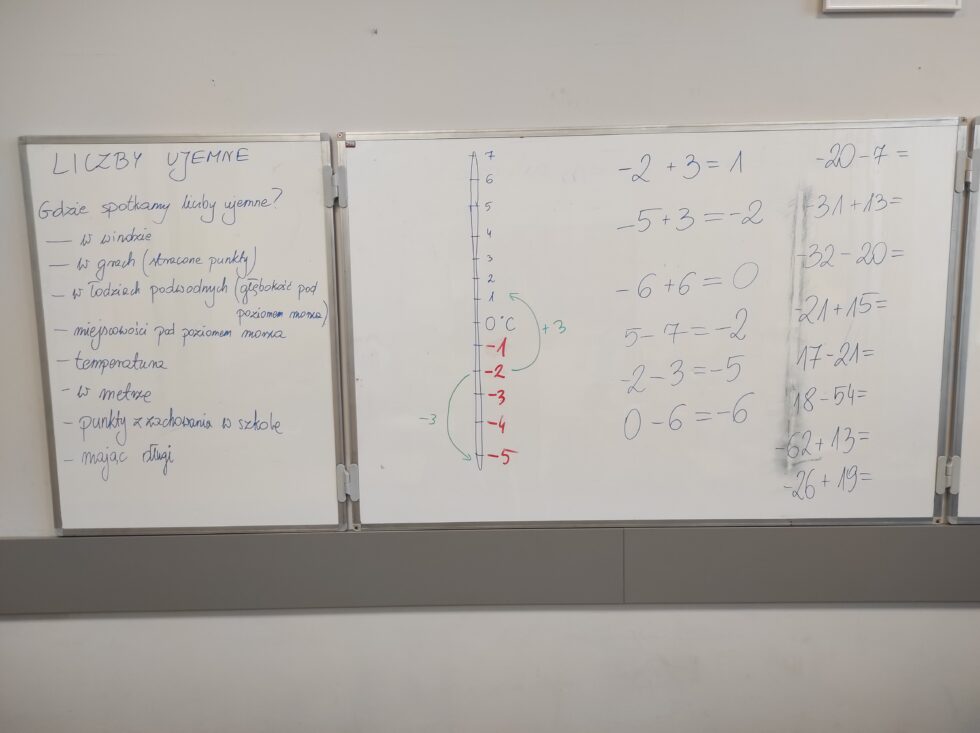 LICZBY UJEMNE
Gdzie spotkamy liczby ujemne?
— w windzie
— w grach (stracone punkty)
- w łodziach podwodnych (głębokość pod
poziomem morza)
- miejscowości pod poziomem morza
- temperatura
- w metrze
- punkty z zachowania w szkole
- mając długi
7
6
5
4
3
2
1
0°C
-1
-2
-3
-4
-5
+3
-3
-2 + 3 = 1
-5 + 3 = -2
-6 + 6 = 0
5 - 7 = -2
-2 - 3 = -5
0 - 6 = -6
-20 - 7 =
-31 + 13 =
-32 - 20 =
-21 + 15 =
17 - 21 =
18 - 54 =
-62 + 13 =
-26 + 19 =